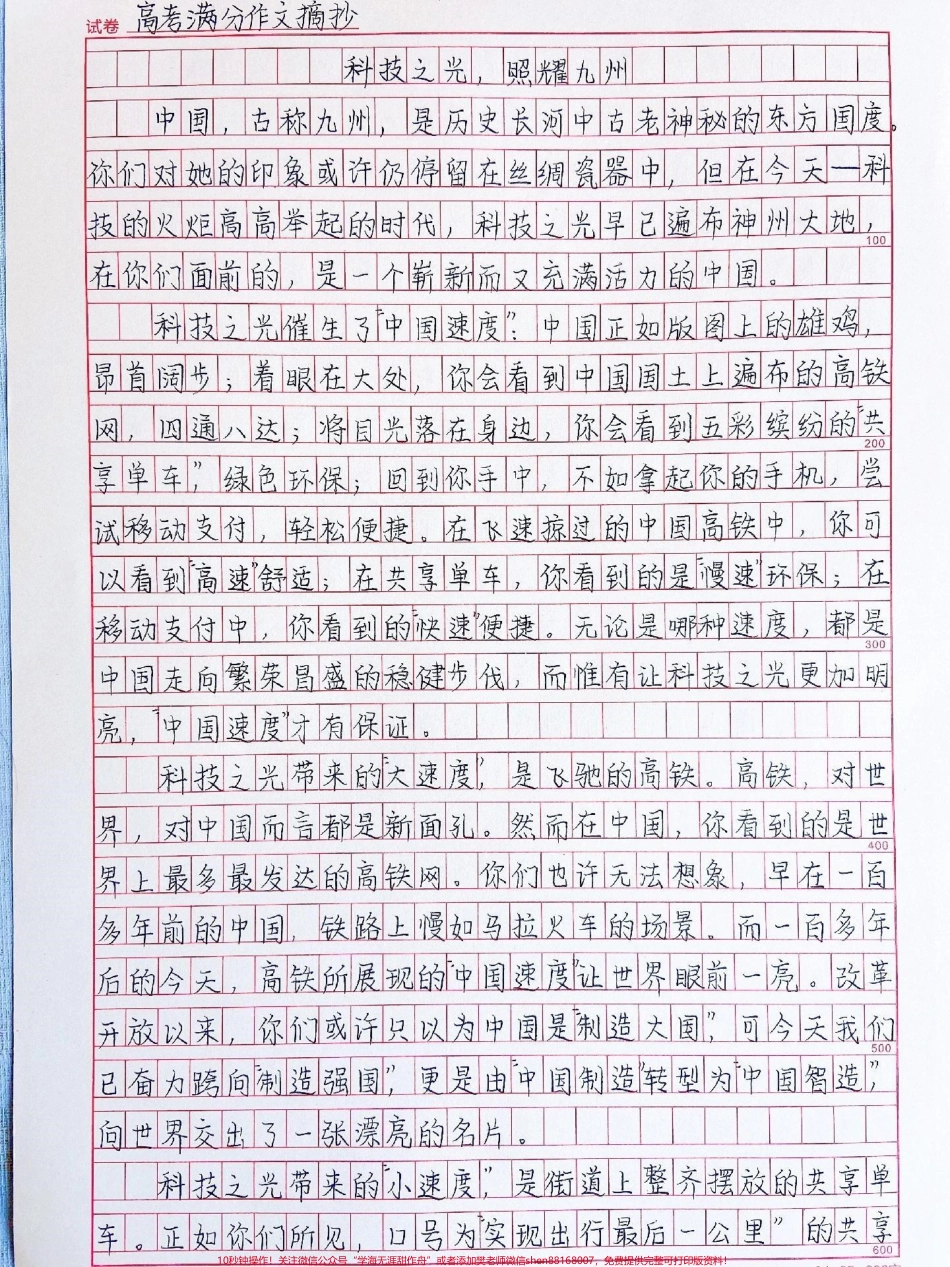 试卷 高考满分作文摘抄
科技之光，照耀九州
中国，古称九州，是历史长河中古老神秘的东方国度。
你们对她的印象或许仍停留在丝绸瓷器中，但在今天—科
技的火炬高高举起的时代，科技之光早已遍布神州大地，
100
在你们面前的，是一个崭新而又充满活力的中国。
科技之光催生了“中国速度”？中国正如版图上的雄鸡，
昂首阔步；着眼在大处，你会看到中国国土上遍布的高铁
网，四通八达；将目光落在身边，你会看到五彩缤纷的“共
200
享单车”，绿色环保；回到你手中，不如拿起你的手机，尝
试移动支付，轻松便捷。在飞速掠过的中国高铁中，你可
以看到“高速”舒适；在共享单车，你看到的是“慢速”环保；在
移动支付中，你看到的“快速”便捷。无论是哪种速度，都是
300
中国走向繁荣昌盛的稳健步伐，而惟有让科技之光更加明
亮，“中国速度”才有保证。
科技之光带来的“大速度”，是飞驰的高铁。高铁，对世
界，对中国而言都是新面孔。然而在中国，你看到的是世
400
界上最多最发达的高铁网。你们也许无法想象，早在一百
多年前的中国，铁路上慢如马拉火车的场景。而一百多年
后的今天，高铁所展现的“中国速度”让世界眼前一亮。改革
开放以来，你们或许只以为中国是“制造大国”，可今天我们
500
已奋力跨向“制造强国”，更是由“中国制造”转型为“中国智造”，
向世界交出了一张漂亮的名片。
科技之光带来的“小速度”，是街道上整齐摆放的共享单
车。正如你们所见，口号为“实现出行最后一公里”的共享
600
10秒钟操作！关注微信公众号“学海无涯甜作舟”或者添加樊老师微信shen88168007，免费提供完整可打印版资料！